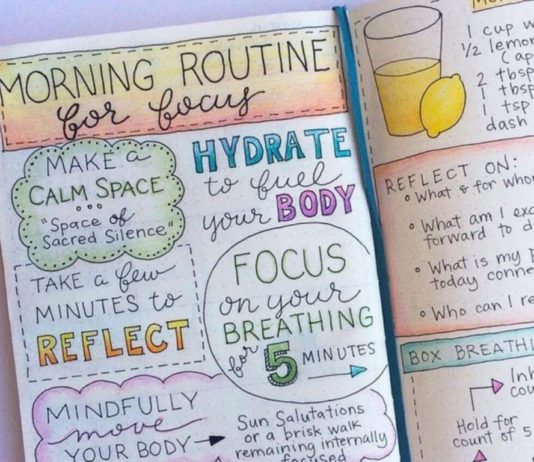 MORNING ROUTINE
for focus
MAKE a
CALM SPACE
"Space of
Sacred Silence"
HYDRATE
to fuel
your BODY
TAKE a few
MINUTES to
REFLECT
FOCUS
on your
BREATHING
for 5 MINUTES
MINDFULLY
move
YOUR BODY
Sun Salutations
or a brisk walk
remaining internally
focused
1 cup
1/2 lemon
2 tbsp
1 tbsp
1 tsp
dash
REFLECT ON:
• What & for
• What am I
forward to
• What is my
today
• Who can I
BOX
Hold for
count of 5